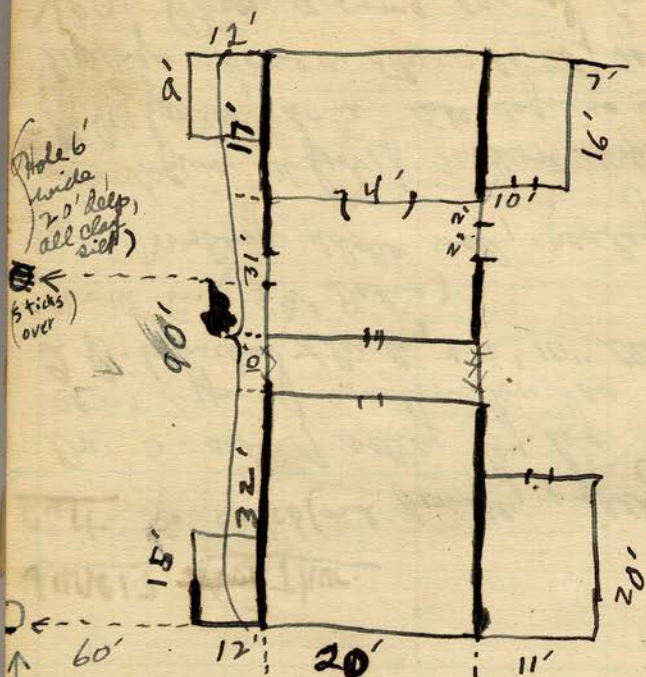 12'
9'
17'
7'
16'
(Hole 6'
wide,
20' deep,
all clay
silt)
4'
10'
2'
2'
31'
(sticks
over)
90'
10'
32'
15'
20'
60'
12'
20'
11'